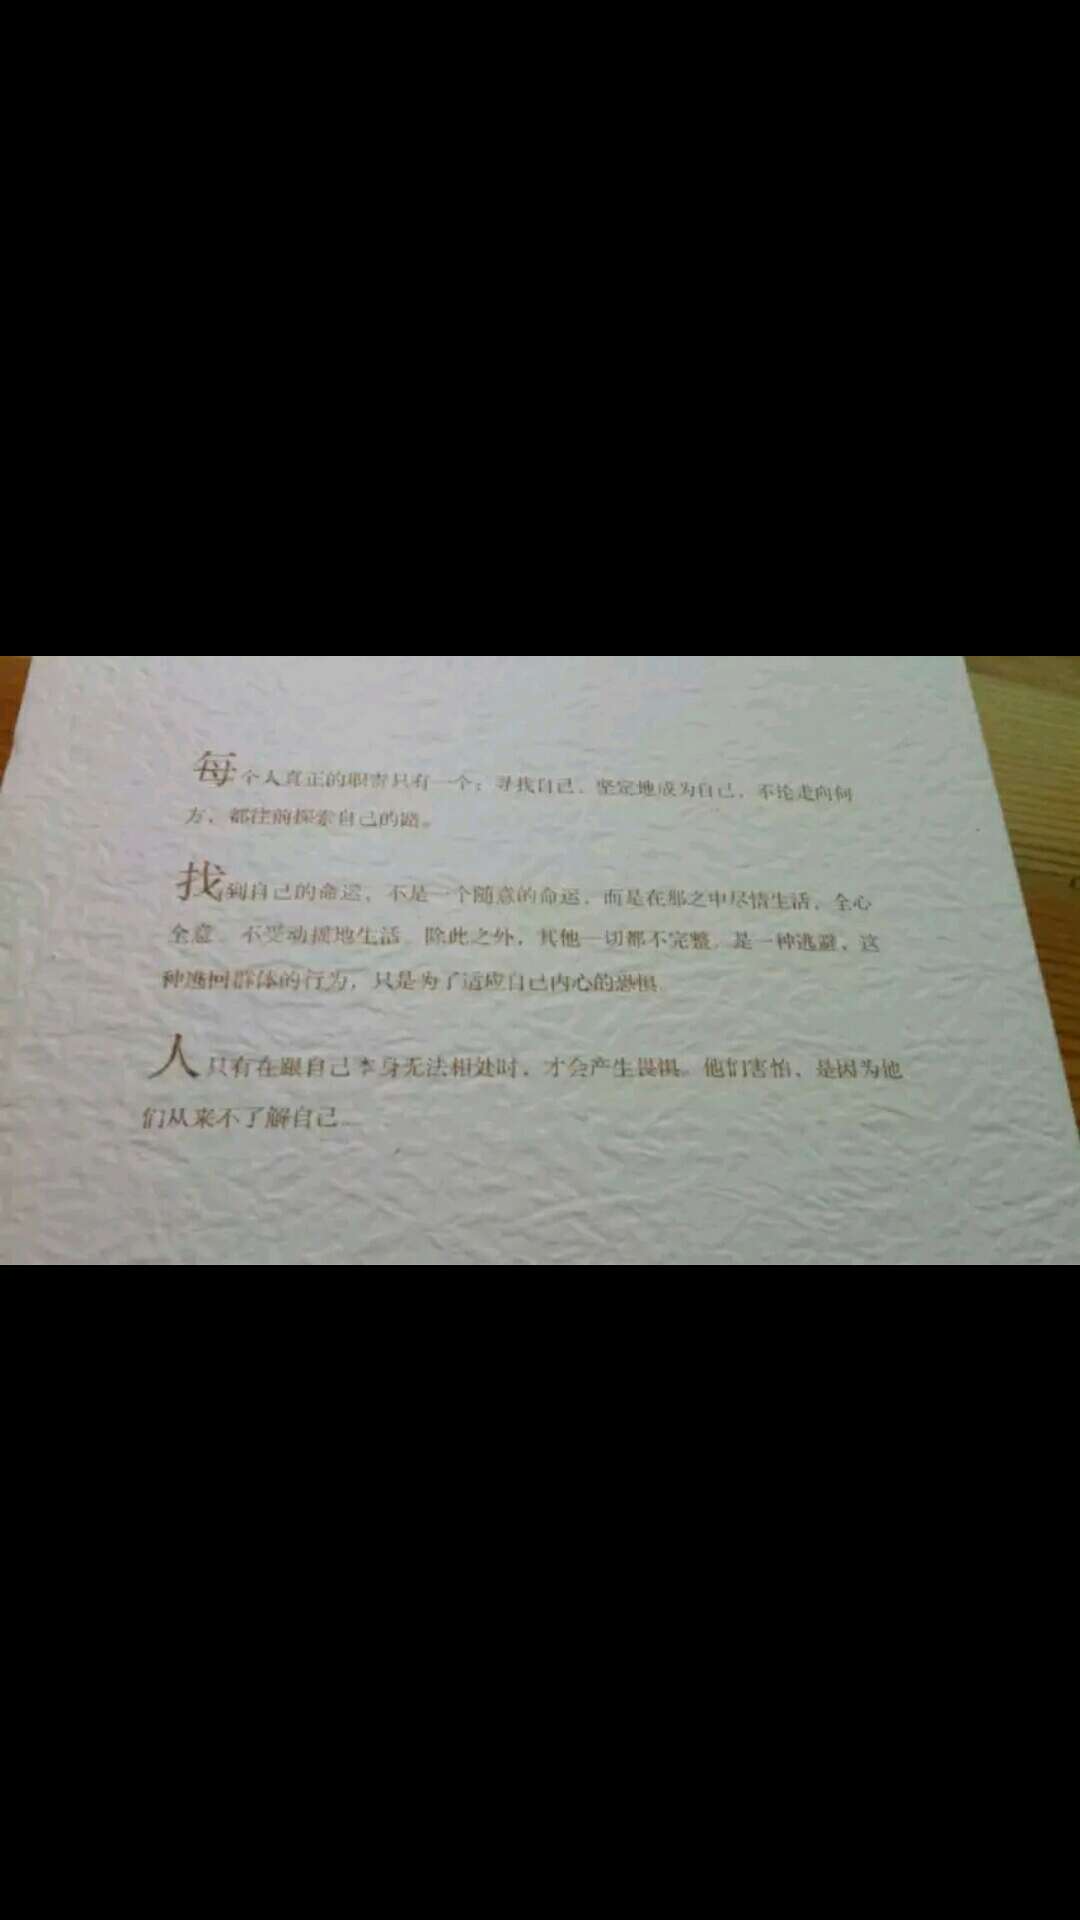 每个人真正的职责只有一个：寻找自己，坚定地成为自己，不论走向何
方，都往前探索自己的路。
找到自己的命运，不是一个随意的命运，而是在那之中尽情生活，全心
全意、不受动摇地生活。除此之外，其他一切都不完整，是一种逃避，这
种逃回群体的行为，只是为了适应自己内心的恐惧。
人只有在跟自己本身无法相处时，才会产生畏惧。他们害怕，是因为他
们从来不了解自己。